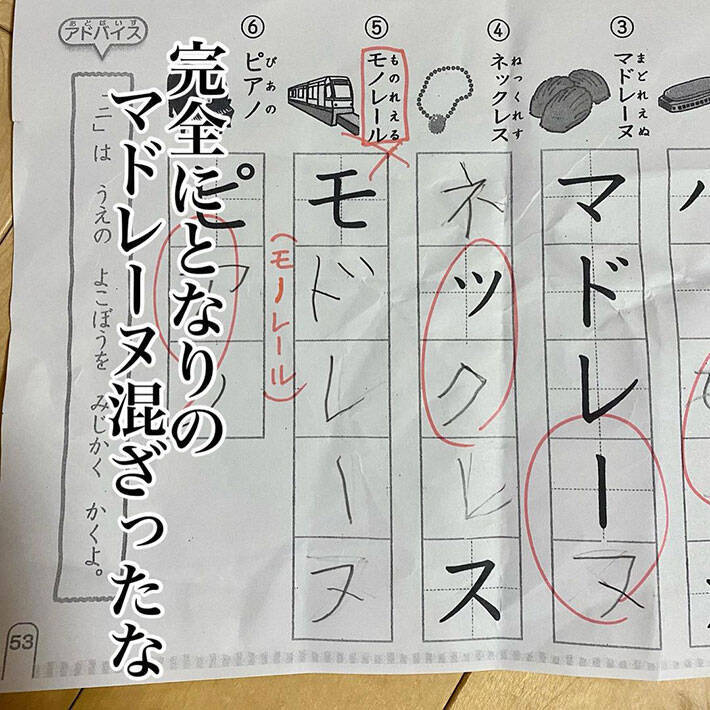 ③
まどれえぬ
マドレーヌ
マドレーヌ
④
ねっくれす
ネックレス
ネックレス
⑤
ものれえる
モノレール
モドレーヌ
(モノレール)
⑥
ぴあの
ピアノ
ピアノ
あどばいす
アドバイス
「ニ」は うえの よこぼうを みじかく かくよ。
53
完全にとなりの
マドレーヌ混ざったな